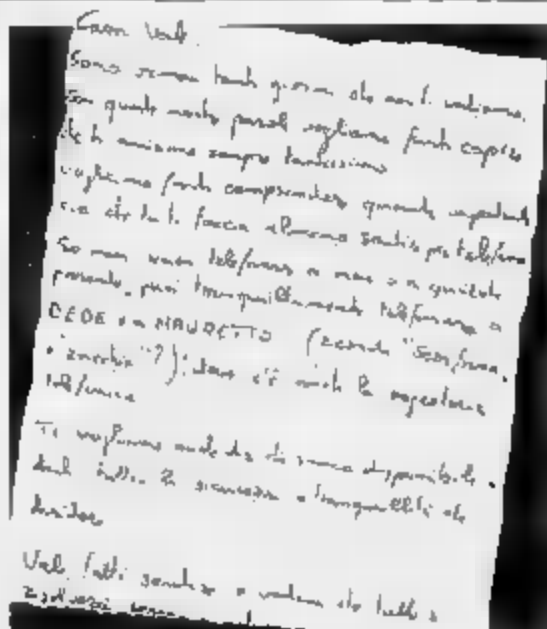 Cara Vale.
Sono ormai tanti giorni che non ti vediamo.
Con queste nostre parole vogliamo farti capire
che ti amiamo sempre tantissimo
vogliamo farti comprendere quanto importante
sia che tu ti faccia almeno sentire per telefono
Se non vuoi telefonare a noi o a qualche
parente, puoi tranquillamente telefonare a
DEDE o a MAURETTO
telefonica
Ti vogliamo anche dire che siamo disponibili a
darti tutta la sicurezza e tranquillità che
desideri
Vale, fatti sentire e vedrai che tutto si